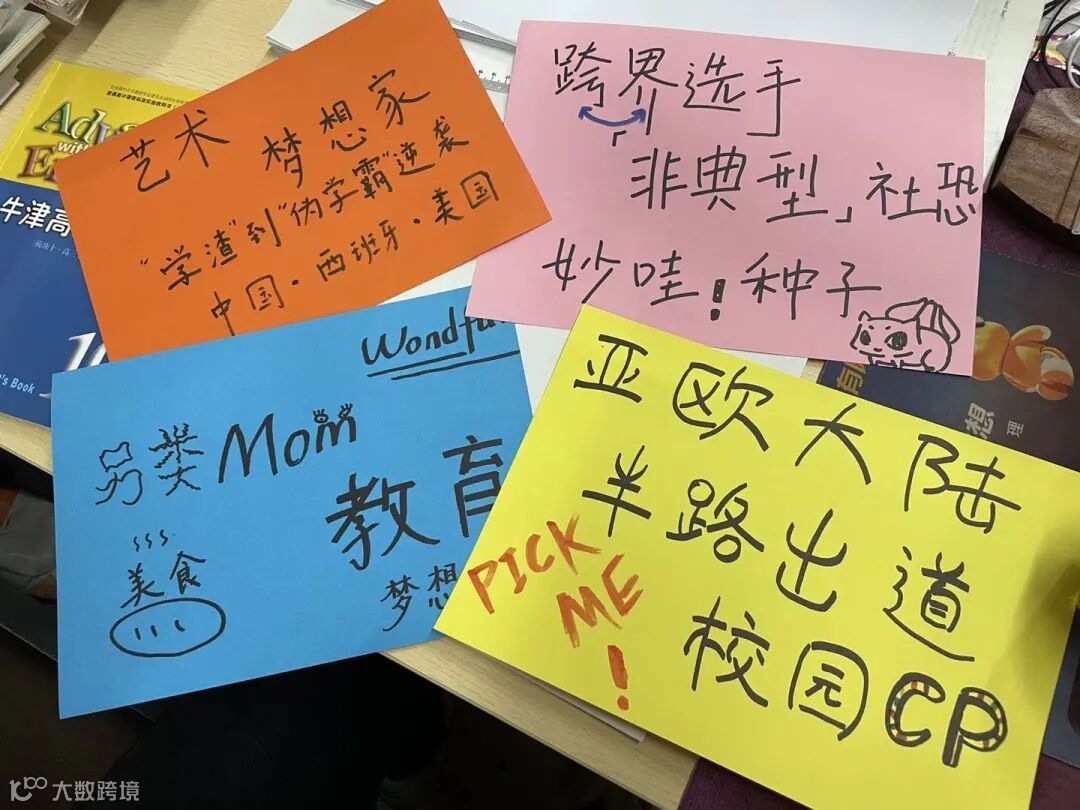 艺术 梦想家
"学渣"到"伪学霸"逆袭
中国·西班牙·美国
跨界选手
「非典型」社恐
妙哇!种子
Wondfu
另类Mom
教育
美食
梦想
亚欧大陆
半路出道
校园CP
PICK
ME
!
Adv
with
E
牛津高
's Book
想
理
大数跨境